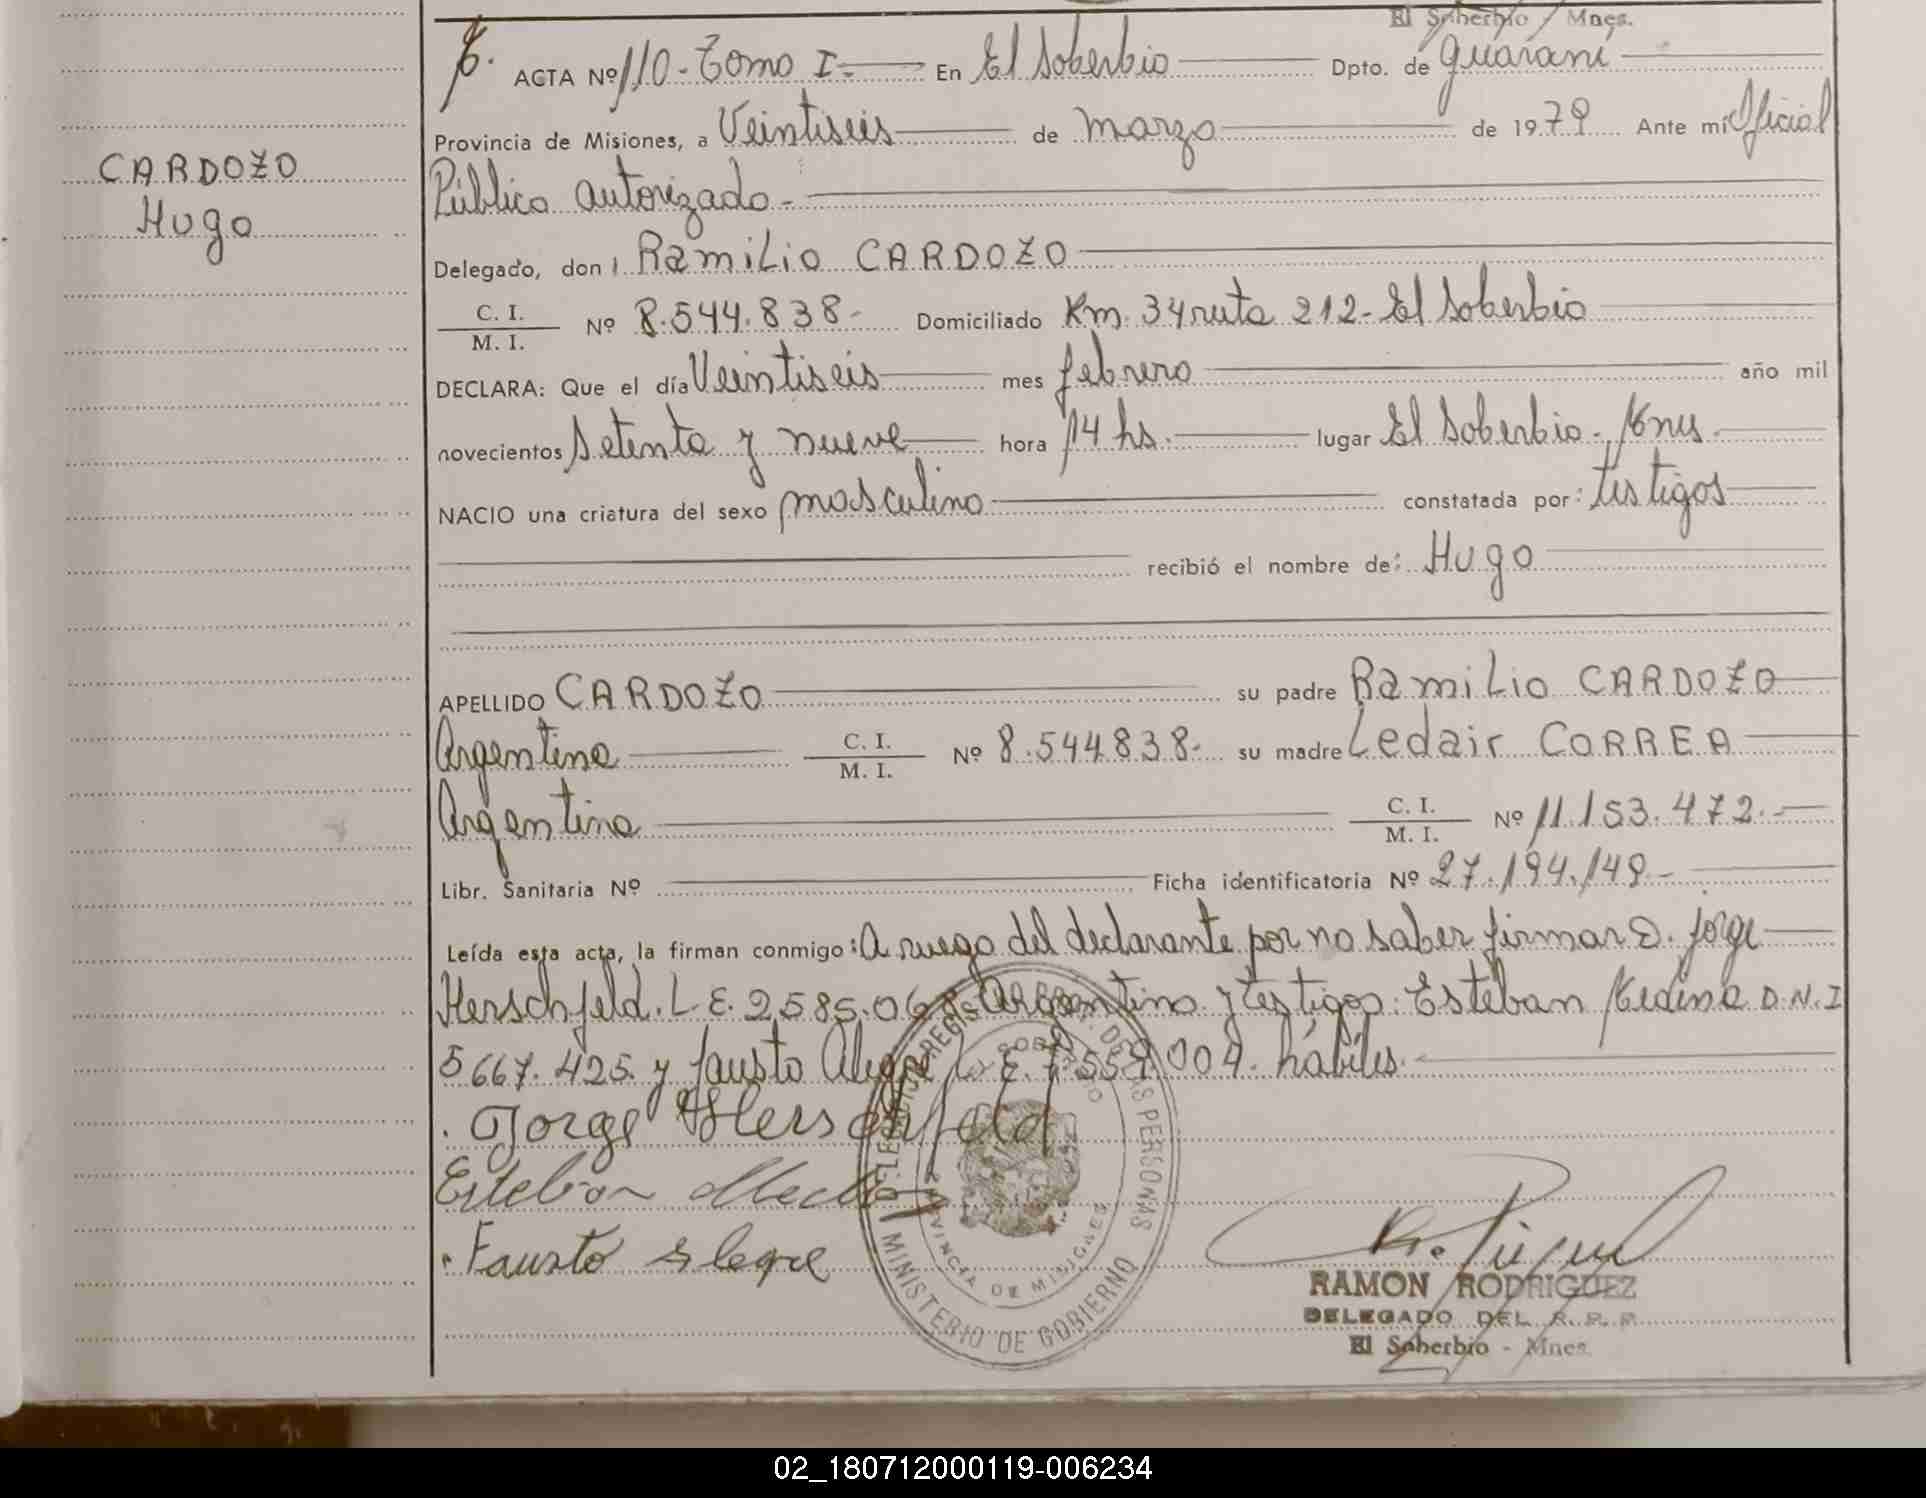 El Soberbio / Mnes.
CARDOZO
Hugo
ACTA Nº 110 - Tomo I.- En El Soberbio Dpto. de Guaraní
Provincia de Misiones, a Veintiseis de marzo de 1979 Ante mi Oficial
Público autorizado.-
Delegado, don Ramilio CARDOZO
C. I.
M. I. Nº 8.544.838.- Domiciliado Km. 34 ruta 212 - El Soberbio
DECLARA: Que el día Veintiseis mes febrero año mil
novecientos Setenta y nueve hora 14 hs. lugar El Soberbio - Mnes.
NACIO una criatura del sexo masculino constatada por: testigos
recibió el nombre de: Hugo
APELLIDO CARDOZO su padre Ramilio CARDOZO
Argentino C. I. M. I. Nº 8.544.838- su madre Ledair CORREA
Argentina C. I. M. I. Nº 11.153.472.-
Libr. Sanitaria Nº Ficha identificatoria Nº 27.194.149.-
Leída esta acta, la firman conmigo: A ruego del declarante por no saber firmar D. Jorge
Herschfeld. L E. 2585.068 Argentino y testigos: Esteban Medina D.N.I
5667.425 y fausto Alegre L. E. 7.559.004. hábiles.-
Jorge Herschfeld
Esteban Medina
Fausto Alegre
DELEGACION REGISTRO DE LAS PERSONAS
EL SOBERBIO
PROVINCIA DE MISIONES
MINISTERIO DE GOBIERNO
RAMON RODRIGUEZ
DELEGADO DEL R. P. P.
El Soberbio - Mnes.
02_180712000119-006234